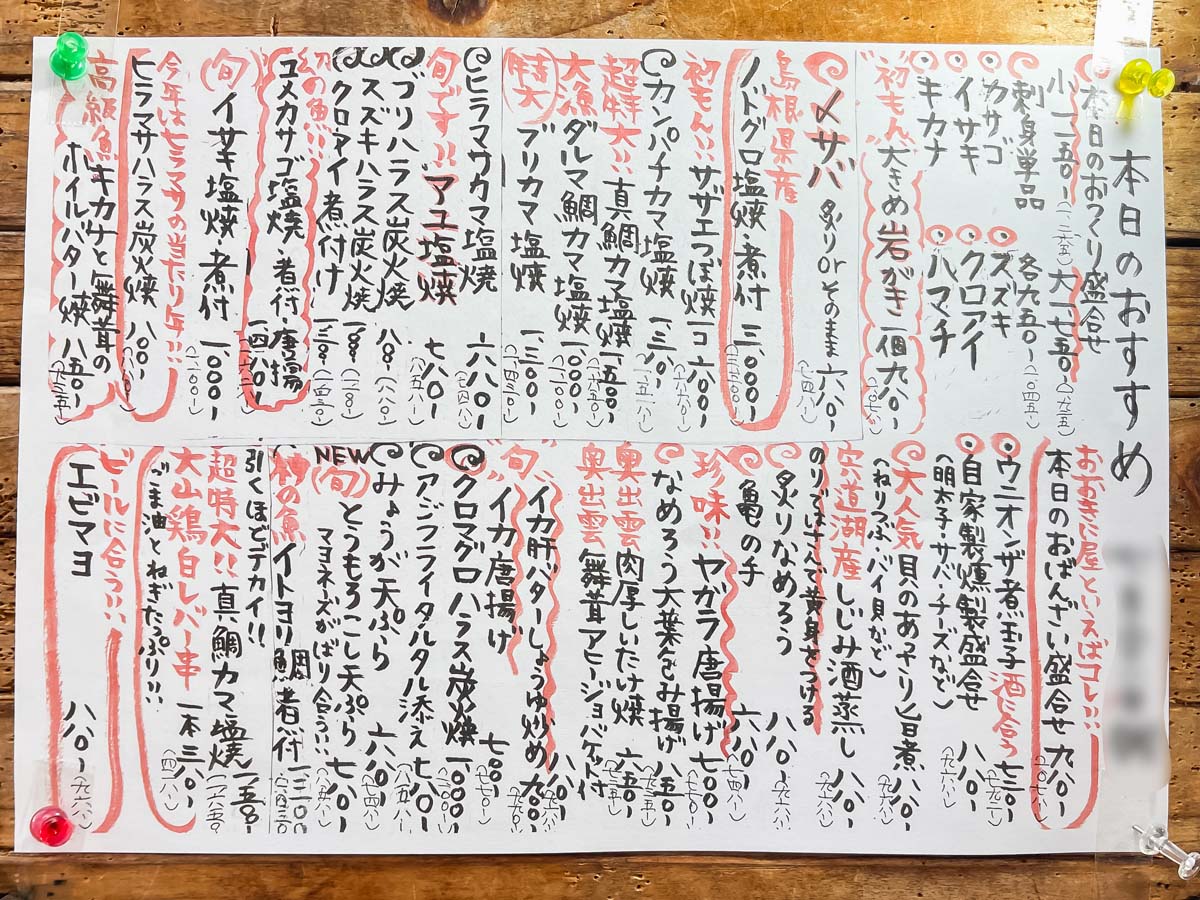 本日のおすすめ
本日のおつくり盛合せ
小 一二五〇 大 一七五〇
刺身単品 各九五〇 (一〇四五)
カサゴ
イサキ
キカナ
スズキ
クロアイ
ハマチ
"初もん" 大きめ岩がき 一個九八〇 (一〇七八)
〆サバ 炙りorそのまま 六八〇 (七四八)
島根県産
ノドグロ塩焼・煮付 三〇〇〇 (三三〇〇)
初もん!! サザエつぼ焼 一コ 六〇〇 (六六〇)
カンパチカマ塩焼
超特大!! 真鯛カマ塩焼 一五〇〇 (一六五〇)
大漁 ダルマ鯛カマ塩焼 一〇〇〇 (一一〇〇)
(特大) ブリカマ塩焼 一三〇〇 (一四三〇)
ヒラマサカマ塩焼 六八〇 (七四八)
旬です!! アユ塩焼 七八〇 (八五八)
ブリハラス炭火焼 八〇〇 (八八〇)
スズキハラス炭火焼
クロアイ煮付け 一三〇〇 (一四三〇)
幻の魚!!
ユメカサゴ塩焼・煮付・唐揚 一四八〇
(旬) イサキ塩焼・煮付 一〇〇〇 (一一〇〇)
今年はヒラマサの当たり年!!!
ヒラマサハラス炭火焼 八〇〇
高級魚 キカナと舞茸の
ホイルバター焼 八五〇 (九三五)
おおきに屋といえばコレ!!
本日のおばんざい盛合せ 九八〇 (一〇七八)
ウニオンザ煮玉子 酒に合う 七三〇
自家製燻製盛合せ 八八〇 (九六八)
(明太子・サバ・チーズなど)
大人気 貝のあっさり旨煮 八八〇 (九六八)
(ねりつぶ・バイ貝など)
宍道湖産 しじみ酒蒸し 八八〇 (九六八)
のりではさんで黄身をつける
炙りなめろう 八八〇 (九六八)
亀の手 六八〇 (七四八)
珍味!! ヤガラ唐揚げ 七〇〇 (七七〇)
なめろう大葉包み揚げ 八五〇 (九三五)
奥出雲 肉厚しいたけ焼 六五〇
奥出雲 舞茸アヒージョ バケット付 八八〇 (九六八)
イカ肝バターしょうゆ炒め 九〇〇 (九九〇)
"旬" イカ唐揚げ 七〇〇 (七七〇)
クロマグロハラス炭火焼 一〇〇〇
アジフライタルタル添え 七八〇 (八五八)
みょうが天ぷら 六八〇 (七四八)
NEW (旬) とうもろこし天ぷら 七八〇 (八五八)
マヨネーズがばり合う!!
神の魚 イトヨリ鯛煮付 一三〇〇 (一四三〇)
引くほどデカイ!!
超特大!! 真鯛カマ塩焼 一五〇〇 (一六五〇)
大山鶏白レバー串 一本 三八〇 (四一八)
ごま油とねぎたっぷり!!
ビールに合う!!!
エビマヨ 八八〇 (九六八)